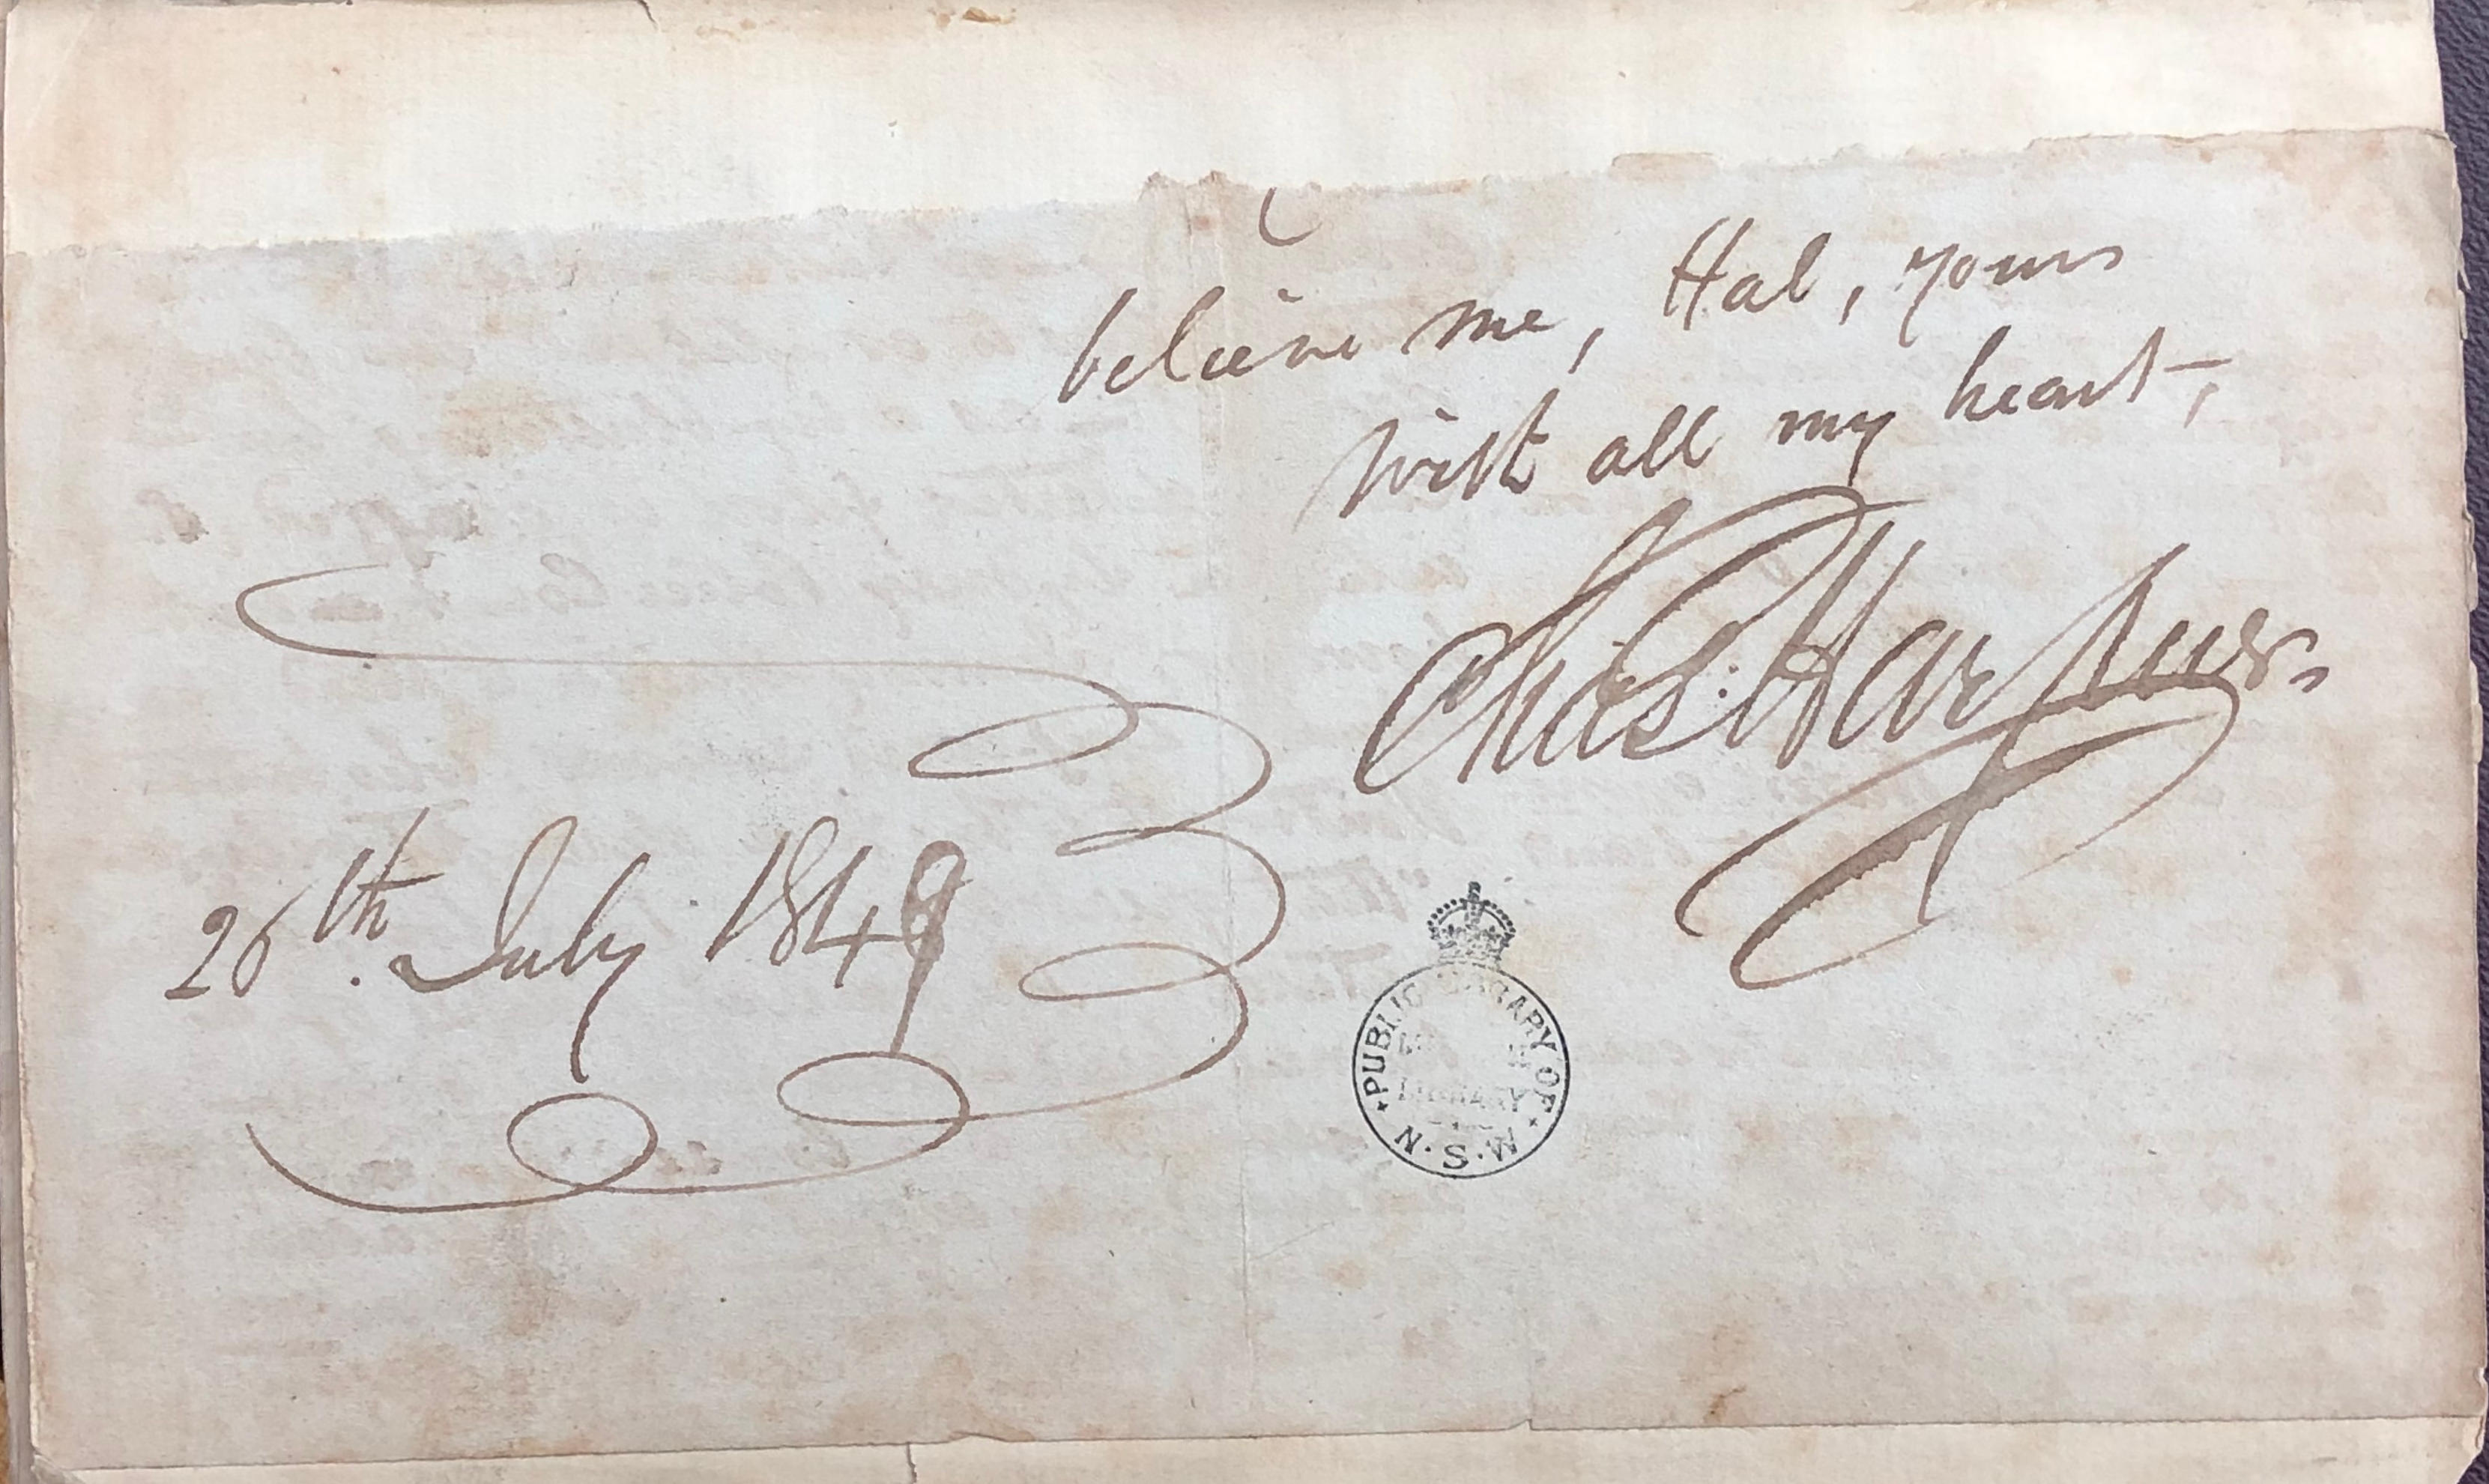 believe me, Hal, yours
with all my heart,
Chas. Harpur.
26th. July 1849
PUBLIC LIBRARY OF
LIBRARY
N.S.W